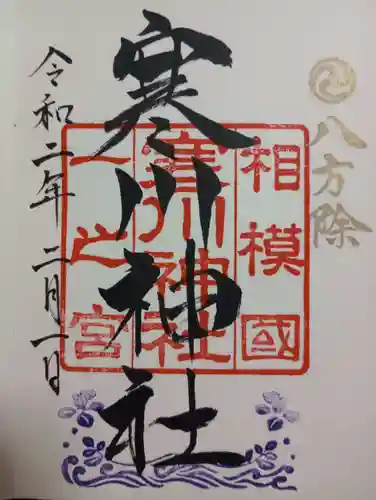 八方除
寒川神社
相模國
寒川神社
一之宮
令和二年二月一日